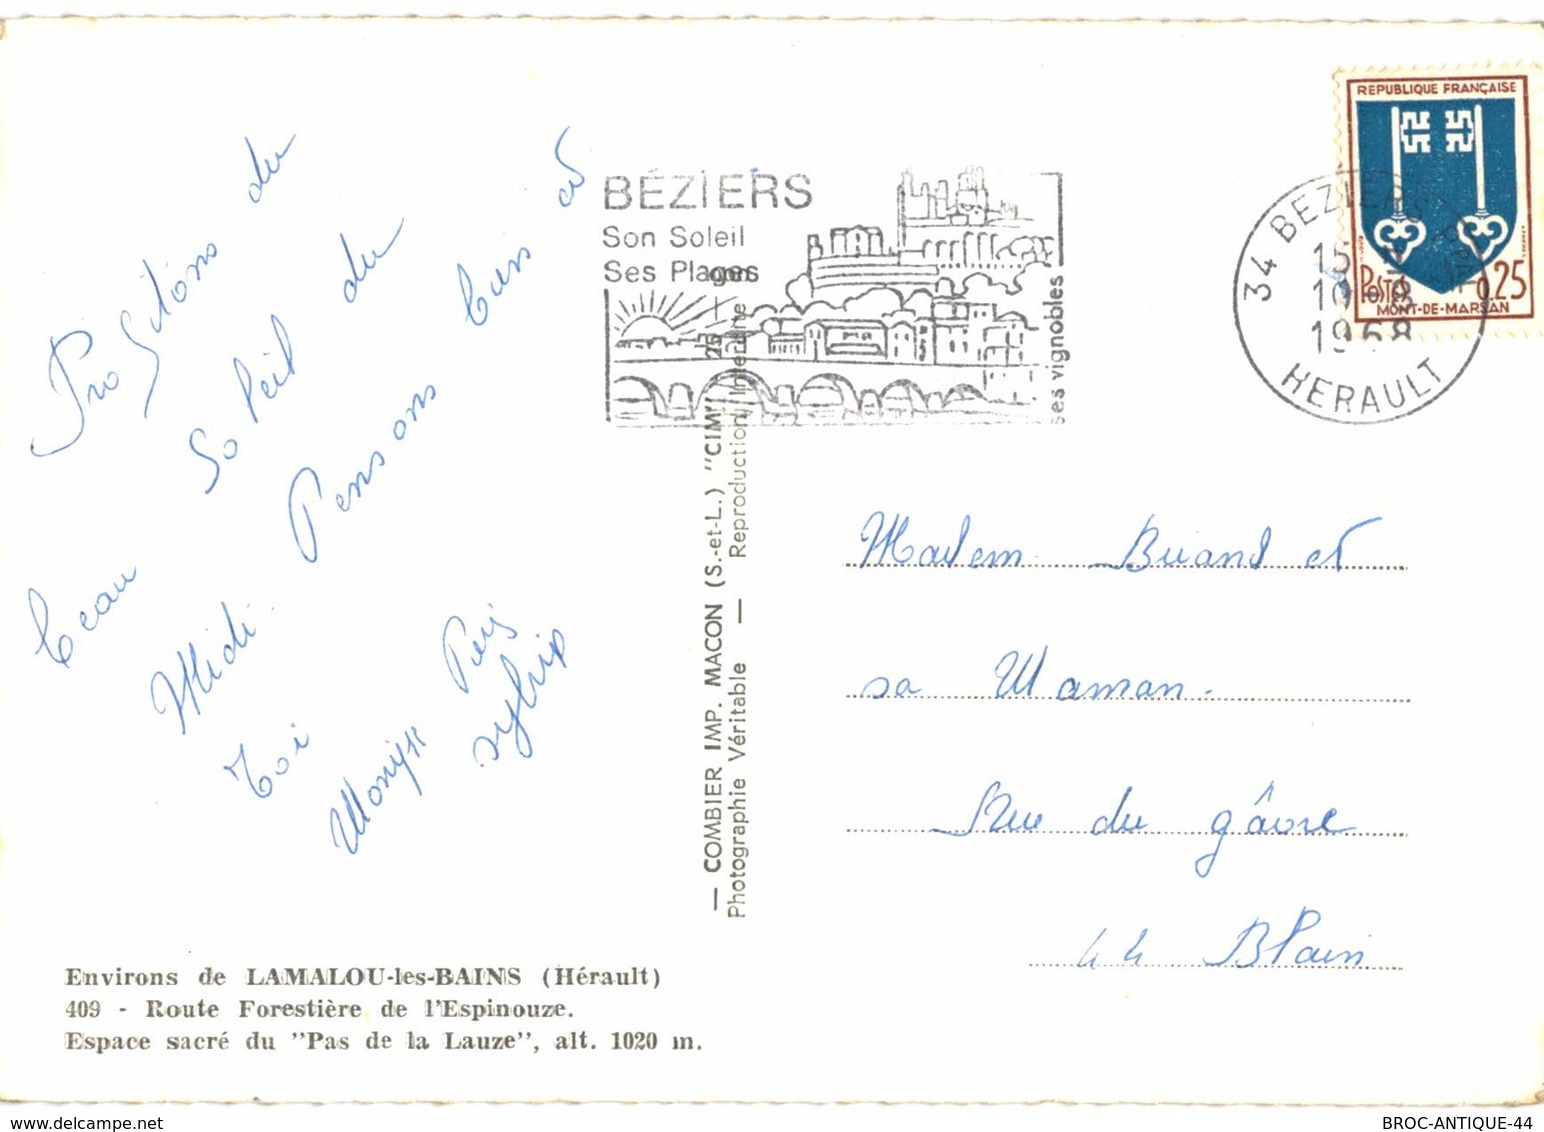 Profitons du
beau Soleil du
Midi. Pensons bien à
Toi
Monique Puis
Sylvie
BEZIERS
Son Soleil
Ses Plages
ses vignobles
REPUBLIQUE FRANÇAISE
POSTES 0,25
MONT-DE-MARSAN
34 BEZIERS
15 H
10-8
1968
HERAULT
— COMBIER IMP. MACON (S.-et-L.) "CIM"
Photographie Véritable — Reproduction Interdite
Madem Briand et
sa Maman.
Rue du gâvre
44 Blain
Environs de LAMALOU-les-BAINS (Hérault)
409 - Route Forestière de l'Espinouze.
Espace sacré du "Pas de la Lauze", alt. 1020 m.
delcampe.net
BROC-ANTIQUE-44